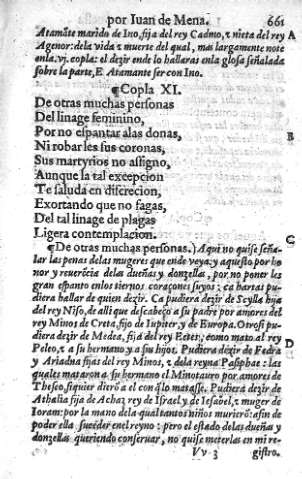 por Iuan de Mena. 661
Atamãte marido de Ino, fija del rey Cadmo, z nieta del rey A
Agenor: dela vida z muerte del qual, mas largamente note
en la.vj. copla: el dezir ende lo hallaras en la glosa señalada
sobre la parte, E Atamante ser con Ino.
¶Copla XI.
De otras muchas personas
Del linage feminino,
Por no espantar alas donas,
Ni robarles sus coronas,
Sus martyrios no assigno,
Aunque la tal excepcion
Te saluda en discrecion,
Exortando que no fagas,
Del tal linage de plagas
Ligera contemplacion. C
¶De otras muchas personas.) Aqui no quise seña-
lar las penas delas mugeres que ende veya: y aquesto por ho
nor y reuerẽcia delas dueñas y donzellas, por no poner les
gran espanto enlos tiernos coraçones suyos: ca harta t pu-
diera hallar de quien dezir. Ca pudiera dezir de Scylla hija
del rey Niso, de alli que descabeço a su padre por amores del
rey Minos de Creta, fijo de Iupiter, y de Europa. Otrosi pu-
diera dezir de Medea, fija del rey Eeter, como mato al rey
Peleo, z a su hermano y a sus hijos. Pudiera dezir de Fedra D
y Ariadna fijas del rey Minos, z dela reyna Pasiphae: las
quales mataron a su hermano el Minotauro por amores de
Theseo, siquier dierõ a el con q̃ lo matasse. Pudiera dezir de
Athalia fija de Achaz rey de Israel y de Iesabel, z muger de
Ioram: por la mano dela qual tantos niños muriero: afin de
poder ella suceder enel reyno: pero el estado delas dueñas y
donzellas queriendo conseruar, no quise meterlas en mi re-
Vv 3 gistro.